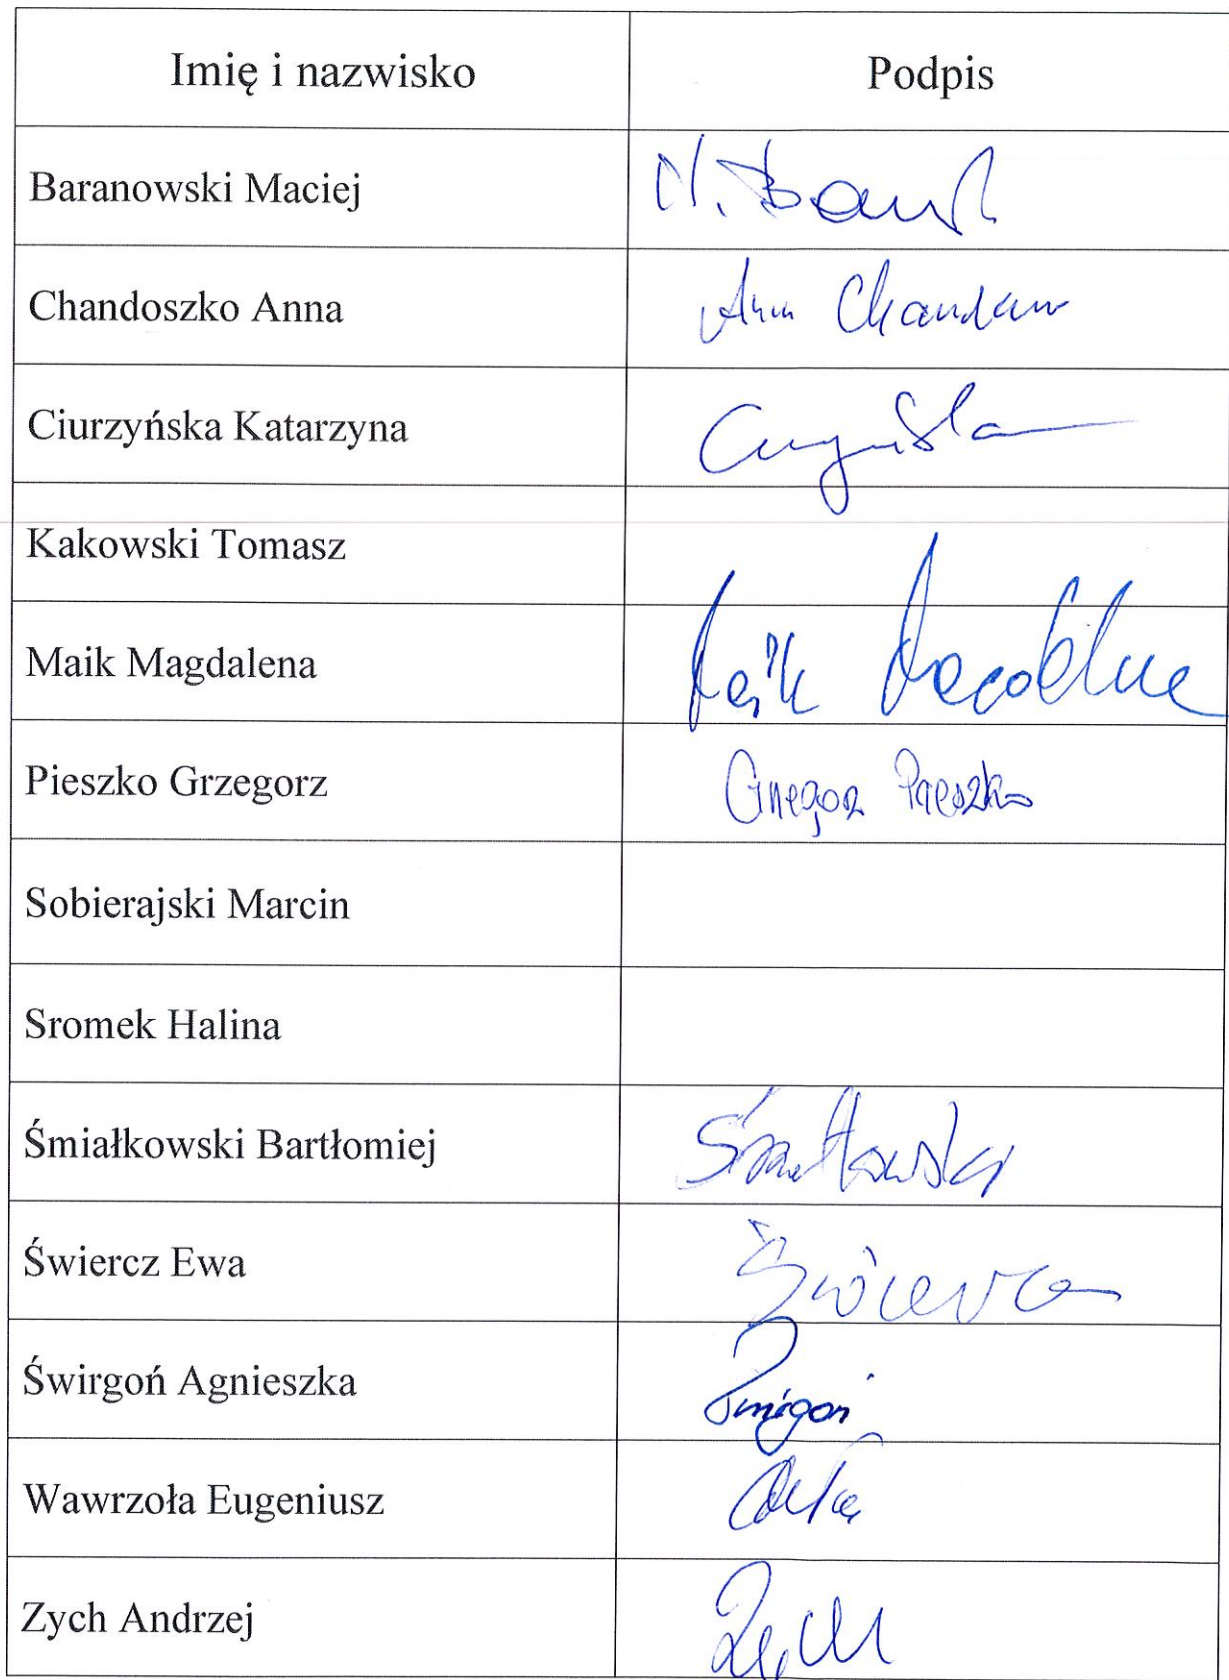 Imię i nazwisko Podpis
Baranowski Maciej
Chandoszko Anna Anna
Ciurzyńska Katarzyna
Kakowski Tomasz
Maik Magdalena Maik
Pieszko Grzegorz Grzegorz Pieszko
Sobierajski Marcin
Sromek Halina
Śmiałkowski Bartłomiej
Świercz Ewa
Świrgoń Agnieszka
Wawrzoła Eugeniusz
Zych Andrzej Zych